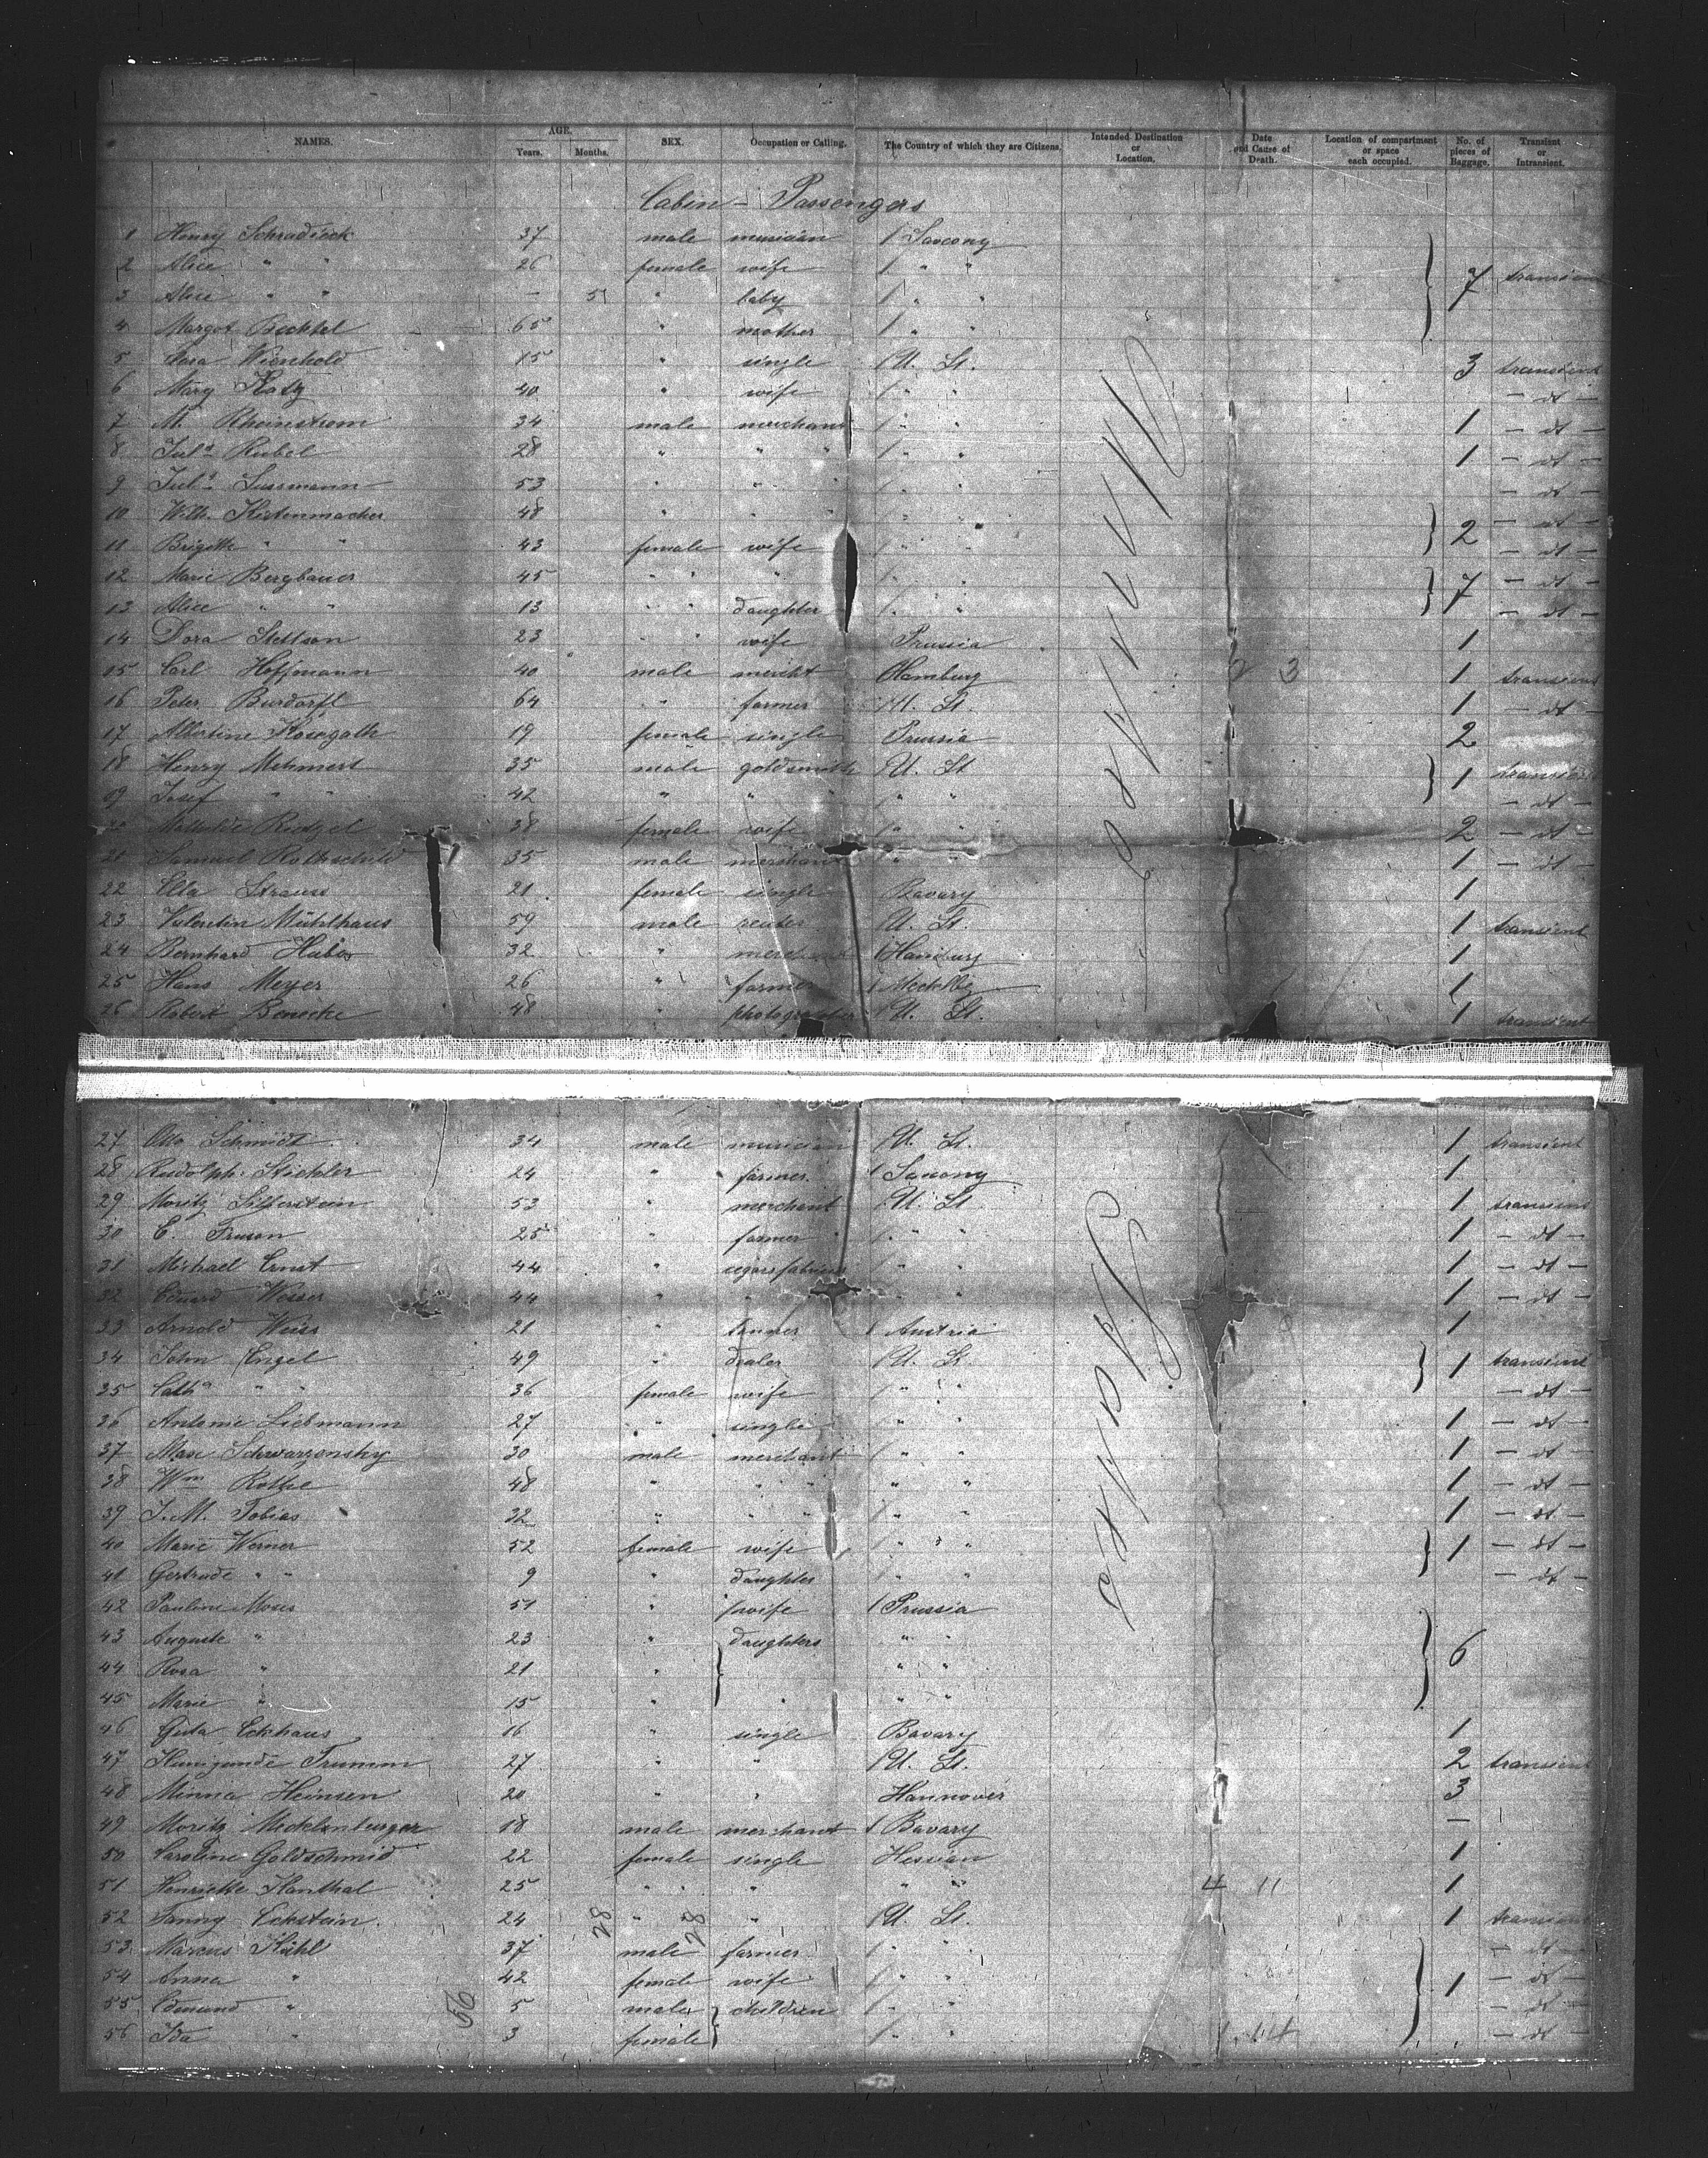 NAMES. AGE. Years. Months. SEX. Occupation or Calling. The Country of which they are Citizens. Intended Destination or Location. Date and Cause of Death. Location of compartment or space each occupied. No. of pieces of Baggage. Transient or Intransient.
Cabin - Passengers
1 Henry Schradieck 37 male musician Saxony
2 Alice " " 26 female wife " " 7 transient
3 Alice " " - 5 " baby " "
4 Margot Bechtel 65 " mother " "
5 Rosa Wienhold 15 " single U. St. 3 transient
6 Mary Katz 40 " wife " " - dt -
7 M. Rheinstrom 34 male merchant " " 1 - dt -
8 Juls Rubel 28 " " " " " 1 - dt -
9 Juls Sussmann 53 " " " " - dt -
10 Wilh. Kistenmacher 48 " " " " " - dt -
11 Brigitte " " 43 female wife " " 2 - dt -
12 Marie Bergbauer 45 " " " " " - dt -
13 Alice " " 13 " " daughter " " 7 - dt -
14 Dora Stettson 23 " " wife Prussia 1
15 Carl Hoffmann 40 male mercht Hamburg 3 1 transient
16 Peter Burdorff 64 " farmer U. St. 1 - dt -
17 Albertine 19 female single Prussia 2
18 Henry Mehmert 35 male goldsmith U. St. 1 transient
19 Josef " " 42 " " " " " - dt -
20 Mathilde 38 female wife " " 2 - dt -
21 Samuel Rothschild 35 male merchant " " 1 - dt -
22 Ella Strauss 21 female single Bavary 1
23 Valentin Mühlhaus 59 male U. St. 1 transient
24 Bernhard Huber 32 " merchant Hamburg 1
25 Hans Meyer 26 " farmer Mecklbg 1
26 Robert Benecke 48 " photographer U. St. 1 transient
27 Otto Schmidt 34 male musician U. St. 1 transient
28 Rudolph. Stichler 24 " farmer Saxony 1
29 Moritz Silberstein 53 " merchant U. St. 1 transient
30 E. 25 " farmer " " 1 - dt -
31 Michael Ernst 44 " " " 1 - dt -
32 Eduard Wesser 44 " " " " 1 - dt -
33 Arnold Weiss 21 " Austria 1
34 John Engel 49 " dealer U. St. 1 transient
35 Cath " " 36 female wife " " - dt -
36 Antonie Liebmann 27 " single " " 1 - dt -
37 Max Schwarzensky 30 male merchant " " 1 - dt -
38 Wm Rothe 48 " " " " " 1 - dt -
39 J. M. Tobias 32 " " " " " 1 - dt -
40 Marie Werner 52 female wife " " " 1 - dt -
41 Gertrude " " 9 " daughter " " - dt -
42 Pauline Moses 51 " wife Prussia
43 Auguste " 23 " daughters " " 6
44 Rosa " 21 " " "
45 Marie " 15 " " " "
46 Guta Eckhaus 16 " single Bavary 1
47 Kunigunde Trumm 27 " " U. St. 2 transient
48 Minna Heinsen 20 " " Hannover 3
49 Moritz Mecklenburger 18 male merchant Bavary -
50 Caroline Goldschmid 22 female single Hessian 1
51 Henriette Kanthal 25 " " " " " 4 11 1
52 Fanny Eckstein 24 28 " 28 " U. St. 1 transient
53 Marcus Kühl 37 male farmer " " - dt -
54 Anna " 42 female wife " " 1 - dt -
55 Edmund " 56 5 male children " " - dt -
56 Ida " 3 female " " 1 14 - dt -